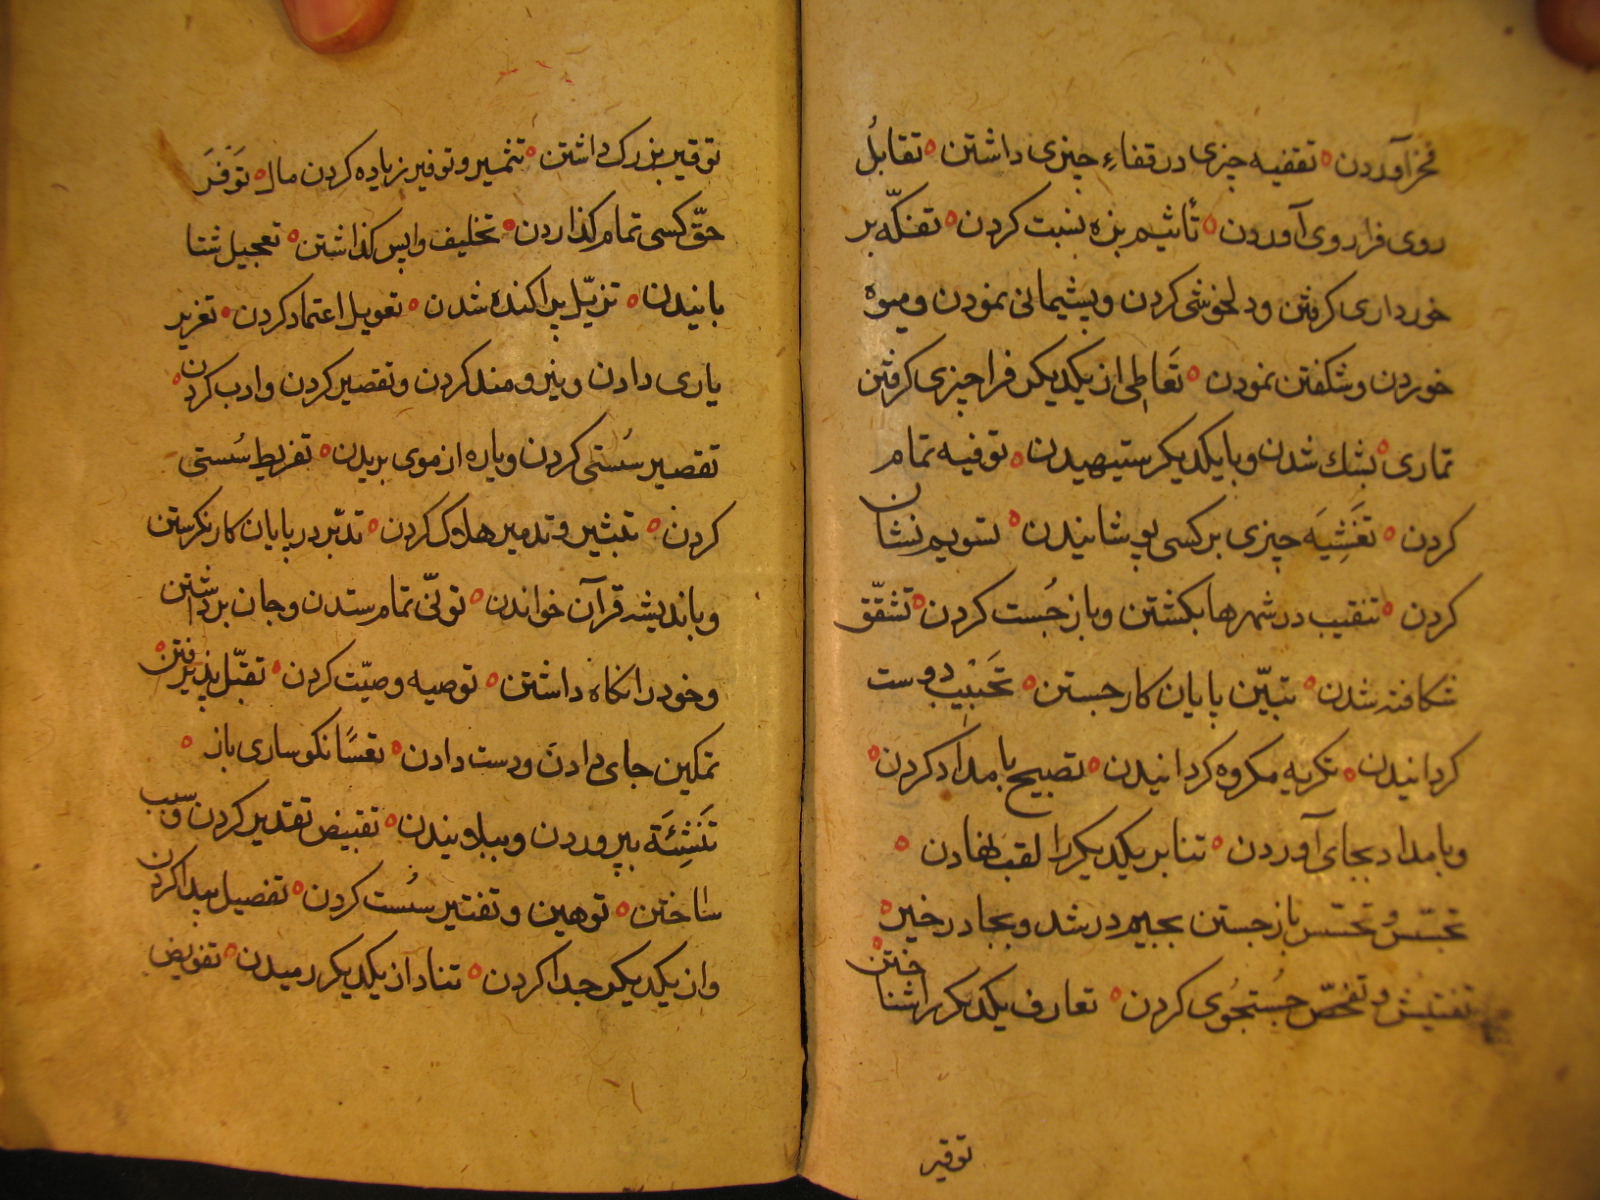 فخر آوردن ه تقفیه چیزی در قفاء چیزی داشتن ه تقابل
روی فرا روی آوردن ه تأثیم بزه نسبت کردن ه تفکّه بر
خورداری کرفتن و دلخوشی کردن و پشیمانی نمودن و میوه
خوردن و شکفتن نمودن ه تَعاطی از یکدیکر فرا چیزی کرفتن
تماری ه بشك شدن و با یکدیکر ستیهیدن ه توفیه تمام
کردن ه تغَشِیَه چیزی بر کسی پوشانیدن ه تسویم نشان
کردن ه تنقیب در شهرها بکشتن و باز جُست کردن ه تشقّق
شکافته شدن ه تبیّن پایان کار جستن ه تَحْبیب دوست
کردانیدن ه تکریه مکروه کردانیدن ه تصبیح بامداد کردن ه
و بامداد بجای آوردن ه تنابز یکدیکر را لقب نهادن ه
تجسّس و تحسّس باز جستن بجیم در شد و بجا در خیر ه
تفتیش و تفحّص جُستجُوی کردن ه تعارف یکدیکر را شناختن ه
توقیر
توقیر بزرک داشتن ه تثمیر و توفیر زیاده کردن مال ه تَوَفّرَ
حقّ کسی تمام کذاردن ه تخلیف واپس کذاشتن ه تعجیل شتا
بانیدن ه تزیّل پراکنده شدن ه تعویل اعتماد کردن ه تعزیر
یاری دادن و نیرومند کردن و تقصیر کردن و ادب کردن ه
تقصیر سُستی کردن و پاره از موی بریدن ه تفریط سُستی
کردن ه تتبیر و تدمیر هلاوک کردن ه تدبّر در پایان کار نکرستن
و باندیشه قرآن خواندن ه تونّی تمام ستدن و جان برداشتن
و خود را نکاه داشتن ه توصیه وصیّت کردن ه تقبّل پذیرفتن ه
تمکین جای دادن و دست دادن ه تعسًا نکوساری باز ه
تَنشِئَة بپروردن و ببلویندن ه تقییض تقدیر کردن و سبب
ساختن ه توهین و تفتیر سُست کردن ه تفصیل پیدا کردن
و از یکدیکر جدا کردن ه تناد از یکدیکر رمیدن ه تفویض